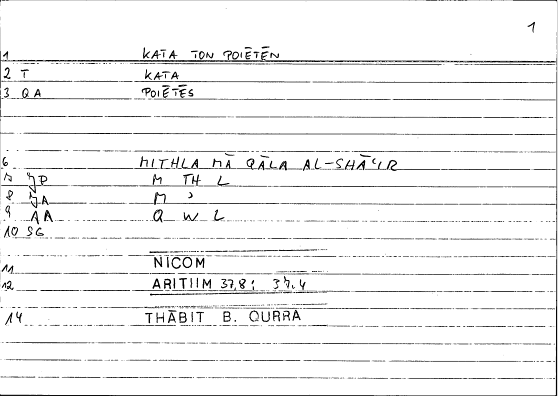 1
1 KATA TON POIĒTĒN
2 T KATA
3 QA POIĒTĒS
6 MITHLA MĀ QĀLA AL-SHĀʿIR
7 JP M TH L
8 JA M ʾ
9 AA Q W L
10 SG
11 NICOM
12 ARITIIM 37,8; 37.4
14 THĀBIT B. QURRA